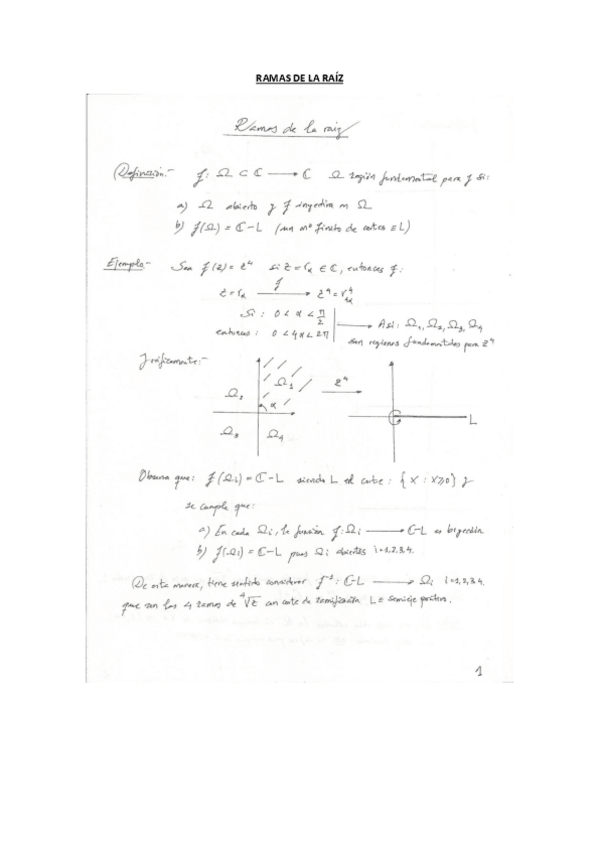 RAMAS DE LA RAÍZ
Ramas de la raiz
Definición.- f: Ω ⊂ ℂ ⟶ ℂ Ω región fundamental para f si:
a) Ω abierto y f inyectiva en Ω
b) f(Ω) = ℂ - L (un nº finito de cortes ≡ L)
Ejemplo.- Sea f(z) = z⁴ si z = r_α ∈ ℂ, entonces f:
z = r_α ⟶ z⁴ = r⁴_4α
f
Si : 0 < α < π/2
entonces : 0 < 4α < 2π
Así: Ω₁, Ω₂, Ω₃, Ω₄
son regiones fundamentales para z⁴
Gráficamente:-
Ω₂ Ω₁ z⁴
α
L
Ω₃ Ω₄
Observa que: f(Ωi) = ℂ - L siendo L el corte : { x : x ≥ 0 } y
se cumple que:
a) En cada Ωi, la función f: Ωi ⟶ ℂ - L es biyección
b) f(Ωi) = ℂ - L pues Ωi abiertos i = 1, 2, 3, 4.
De esta manera, tiene sentido considerar f⁻¹: ℂ - L ⟶ Ωi i = 1, 2, 3, 4.
que son las 4 ramas de ⁴√z con corte de ramificación L ≡ semieje positivo.
1